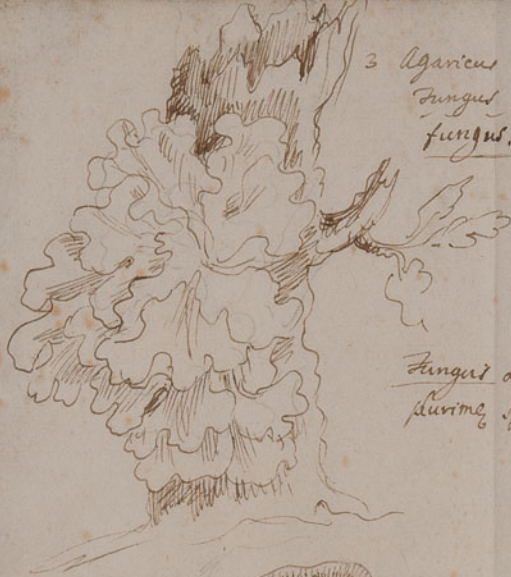 3 Agaricus
Fungus
fungus.
Fungus
plurime